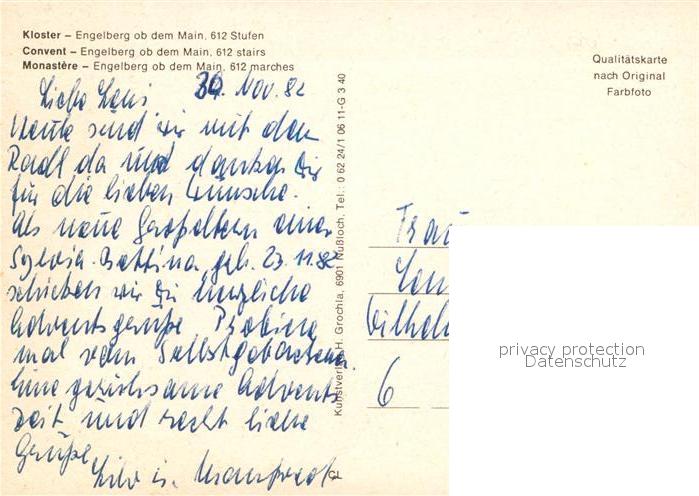 Kloster – Engelberg ob dem Main, 612 Stufen
Convent – Engelberg ob dem Main, 612 stairs
Monastère – Engelberg ob dem Main, 612 marches
Qualitätskarte
nach Original
Farbfoto
Liebe Leni 30. Nov. 82
Heute sind wir mit dem
Radl da und danken Dir
für die lieben Wünsche.
Als neue Großeltern einer
Sylvia-Bettina, geb. 23.11.82
schicken wir Dir herzliche
Adventsgrüße. Probiere
mal vom Selbstgebackenen.
Eine geruhsame Advents
zeit und recht liebe
Grüße
u. Manfred
Kunstverlag H. Grochla, 6901 Nußloch, Tel.: 0 62 24/1 06 11-G 3 40
CL
Frau
Leni
Wilhel
6
privacy protection
Datenschutz